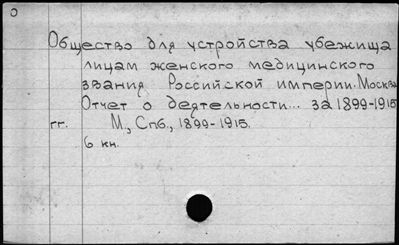 О
Общество для устройства убежища
лицам женского медицинского
звания Российской империи. Москва
Отчет о деятельности... за 1899-1915
гг. М., Спб., 1899-1915.
6 кн.